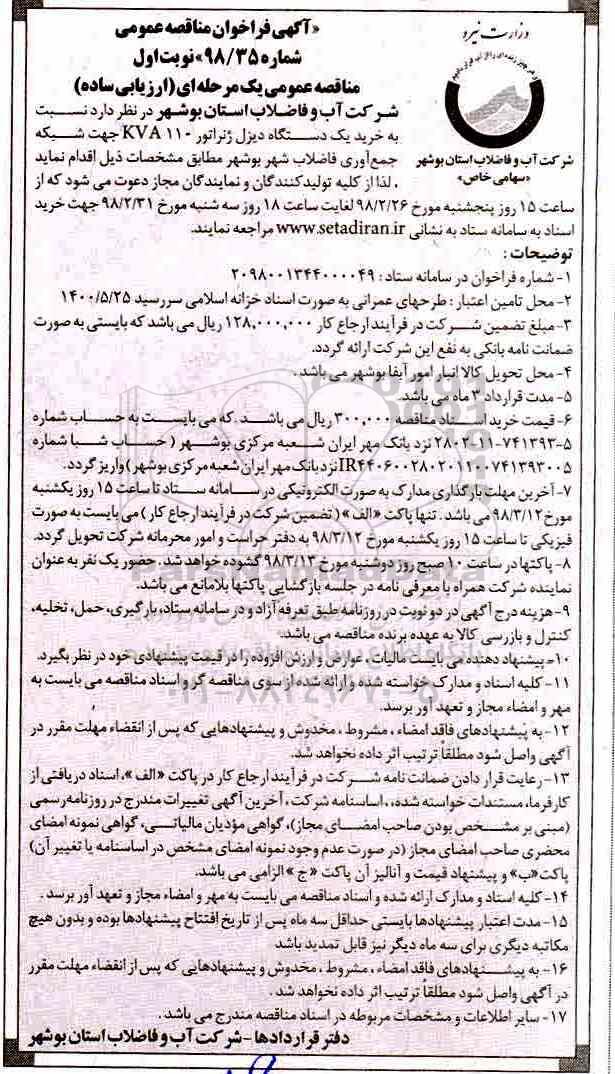 وزارت نیرو
شرکت آب و فاضلاب استان بوشهر
«سهامی خاص»
«آگهی فراخوان مناقصه عمومی
شماره ۹۸/۳۵» نوبت اول
مناقصه عمومی یک مرحله ای (ارزیابی ساده)
شرکت آب و فاضلاب استان بوشهر در نظر دارد نسبت
به خرید یک دستگاه دیزل ژنراتور ۱۱۰ KVA جهت شبکه
جمع‌آوری فاضلاب شهر بوشهر مطابق مشخصات ذیل اقدام نماید
. لذا از کلیه تولیدکنندگان و نمایندگان مجاز دعوت می شود که از
ساعت ۱۵ روز پنجشنبه مورخ ۹۸/۲/۲۶ لغایت ساعت ۱۸ روز سه شنبه مورخ ۹۸/۲/۳۱ جهت خرید
اسناد به سامانه ستاد به نشانی www.setadiran.ir مراجعه نمایند.
توضیحات :
۱- شماره فراخوان در سامانه ستاد : ۲۰۹۸۰۰۱۳۴۴۰۰۰۰۴۹
۲- محل تامین اعتبار : طرحهای عمرانی به صورت اسناد خزانه اسلامی سررسید ۱۴۰۰/۵/۲۵
۳- مبلغ تضمین شرکت در فرآیند ارجاع کار ۱۲۸,۰۰۰,۰۰۰ ریال می باشد که بایستی به صورت
ضمانت نامه بانکی به نفع این شرکت ارائه گردد.
۴- محل تحویل کالا انبار امور آبفا بوشهر می باشد .
۵- مدت قرارداد ۳ ماه می باشد.
۶- قیمت خرید اسناد مناقصه ۳۰۰,۰۰۰ ریال می باشد . که می بایست به حساب شماره
۵-۷۴۱۳۹۳-۱۱-۲۸۰۲ نزد بانک مهر ایران شعبه مرکزی بوشهر ( حساب شبا شماره
IR۴۴۰۶۰۰۲۸۰۲۰۱۱۰۰۷۴۱۳۹۳۰۰۵ نزد بانک مهر ایران شعبه مرکزی بوشهر) واریز گردد.
۷- آخرین مهلت بارگذاری مدارک به صورت الکترونیکی در سامانه ستاد تا ساعت ۱۵ روز یکشنبه
مورخ ۹۸/۳/۱۲ می باشد . تنها پاکت «الف» ( تضمین شرکت در فرآیند ارجاع کار ) می بایست به صورت
فیزیکی تا ساعت ۱۵ روز یکشنبه مورخ ۹۸/۳/۱۲ به دفتر حراست و امور محرمانه شرکت تحویل گردد.
۸- پاکتها در ساعت ۱۰ صبح روز دوشنبه مورخ ۹۸/۳/۱۳ گشوده خواهد شد . حضور یک نفر به عنوان
نماینده شرکت همراه با معرفی نامه در جلسه بازگشایی پاکتها بلامانع می باشد.
۹- هزینه درج آگهی در دو نوبت در روزنامه طبق تعرفه آزاد و در سامانه ستاد، بارگیری، حمل، تخلیه،
کنترل و بازرسی کالا به عهده برنده مناقصه می باشد.
۱۰- پیشنهاد دهنده می بایست مالیات ، عوارض و ارزش افزوده را در قیمت پیشنهادی خود در نظر بگیرد.
۱۱- کلیه اسناد و مدارک خواسته شده و ارائه شده از سوی مناقصه گر و اسناد مناقصه می بایست به
مهر و امضاء مجاز و تعهد آور برسد.
۱۲- به پیشنهادهای فاقد امضاء ، مشروط ، مخدوش و پیشنهادهایی که پس از انقضاء مهلت مقرر در
آگهی واصل شود مطلقاً ترتیب اثر داده نخواهد شد.
۱۳- رعایت قرار دادن ضمانت نامه شرکت در فرآیند ارجاع کار در پاکت «الف»، اسناد دریافتی از
کارفرما، مستندات خواسته شده، ، اساسنامه شرکت ، آخرین آگهی تغییرات مندرج در روزنامه رسمی
(مبنی بر مشخص بودن صاحب امضای مجاز)، گواهی مؤدیان مالیاتی، گواهی نمونه امضای
محضری صاحب امضای مجاز (در صورت عدم وجود نمونه امضای مشخص در اساسنامه یا تغییر آن)
پاکت «ب» و پیشنهاد قیمت و آنالیز آن پاکت «ج» الزامی می باشد.
۱۴- کلیه اسناد و مدارک ارائه شده و اسناد مناقصه می بایست به مهر و امضاء مجاز و تعهد آور برسد .
۱۵- مدت اعتبار پیشنهادها بایستی حداقل سه ماه پس از تاریخ افتتاح پیشنهادها بوده و بدون هیچ
مکاتبه دیگری برای سه ماه دیگر نیز قابل تمدید باشد
۱۶- به پیشنهادهای فاقد امضاء ، مشروط ، مخدوش و پیشنهادهایی که پس از انقضاء مهلت مقرر
در آگهی واصل شود مطلقاً ترتیب اثر داده نخواهد شد .
۱۷- سایر اطلاعات و مشخصات مربوطه در اسناد مناقصه مندرج می باشد .
دفتر قراردادها - شرکت آب و فاضلاب استان بوشهر